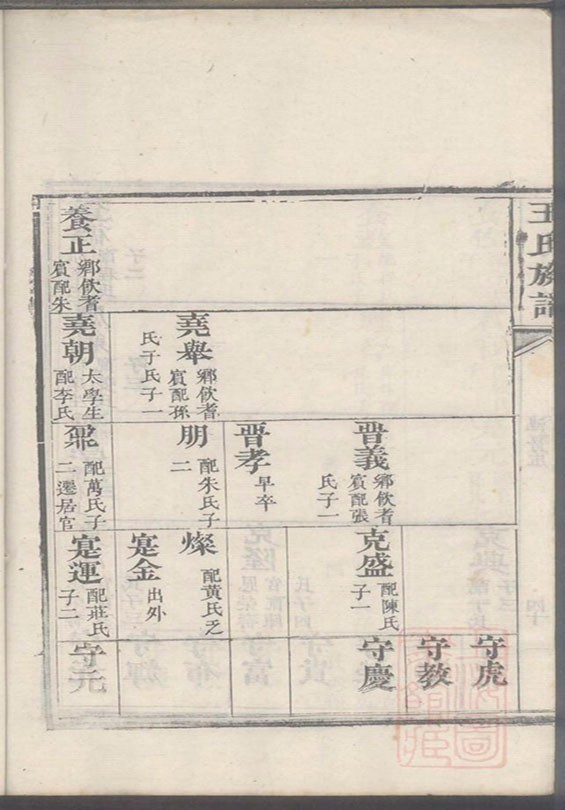 王氏族譜
養正
鄉飲耆
賓配朱
堯舉
鄉飲耆
賓配孫
氏于氏子一
堯朝
太學生
配李氏
晋義
鄉飲耆
賓配張
氏子一
晋孝
早卒
朋
配朱氏子
二
鼐
配萬氏子
二遷居官
克盛
配陳氏
子一
燦
配黃氏乏
寔金
出外
寔運
配莊氏
子二
守虎
守教
守慶
守元